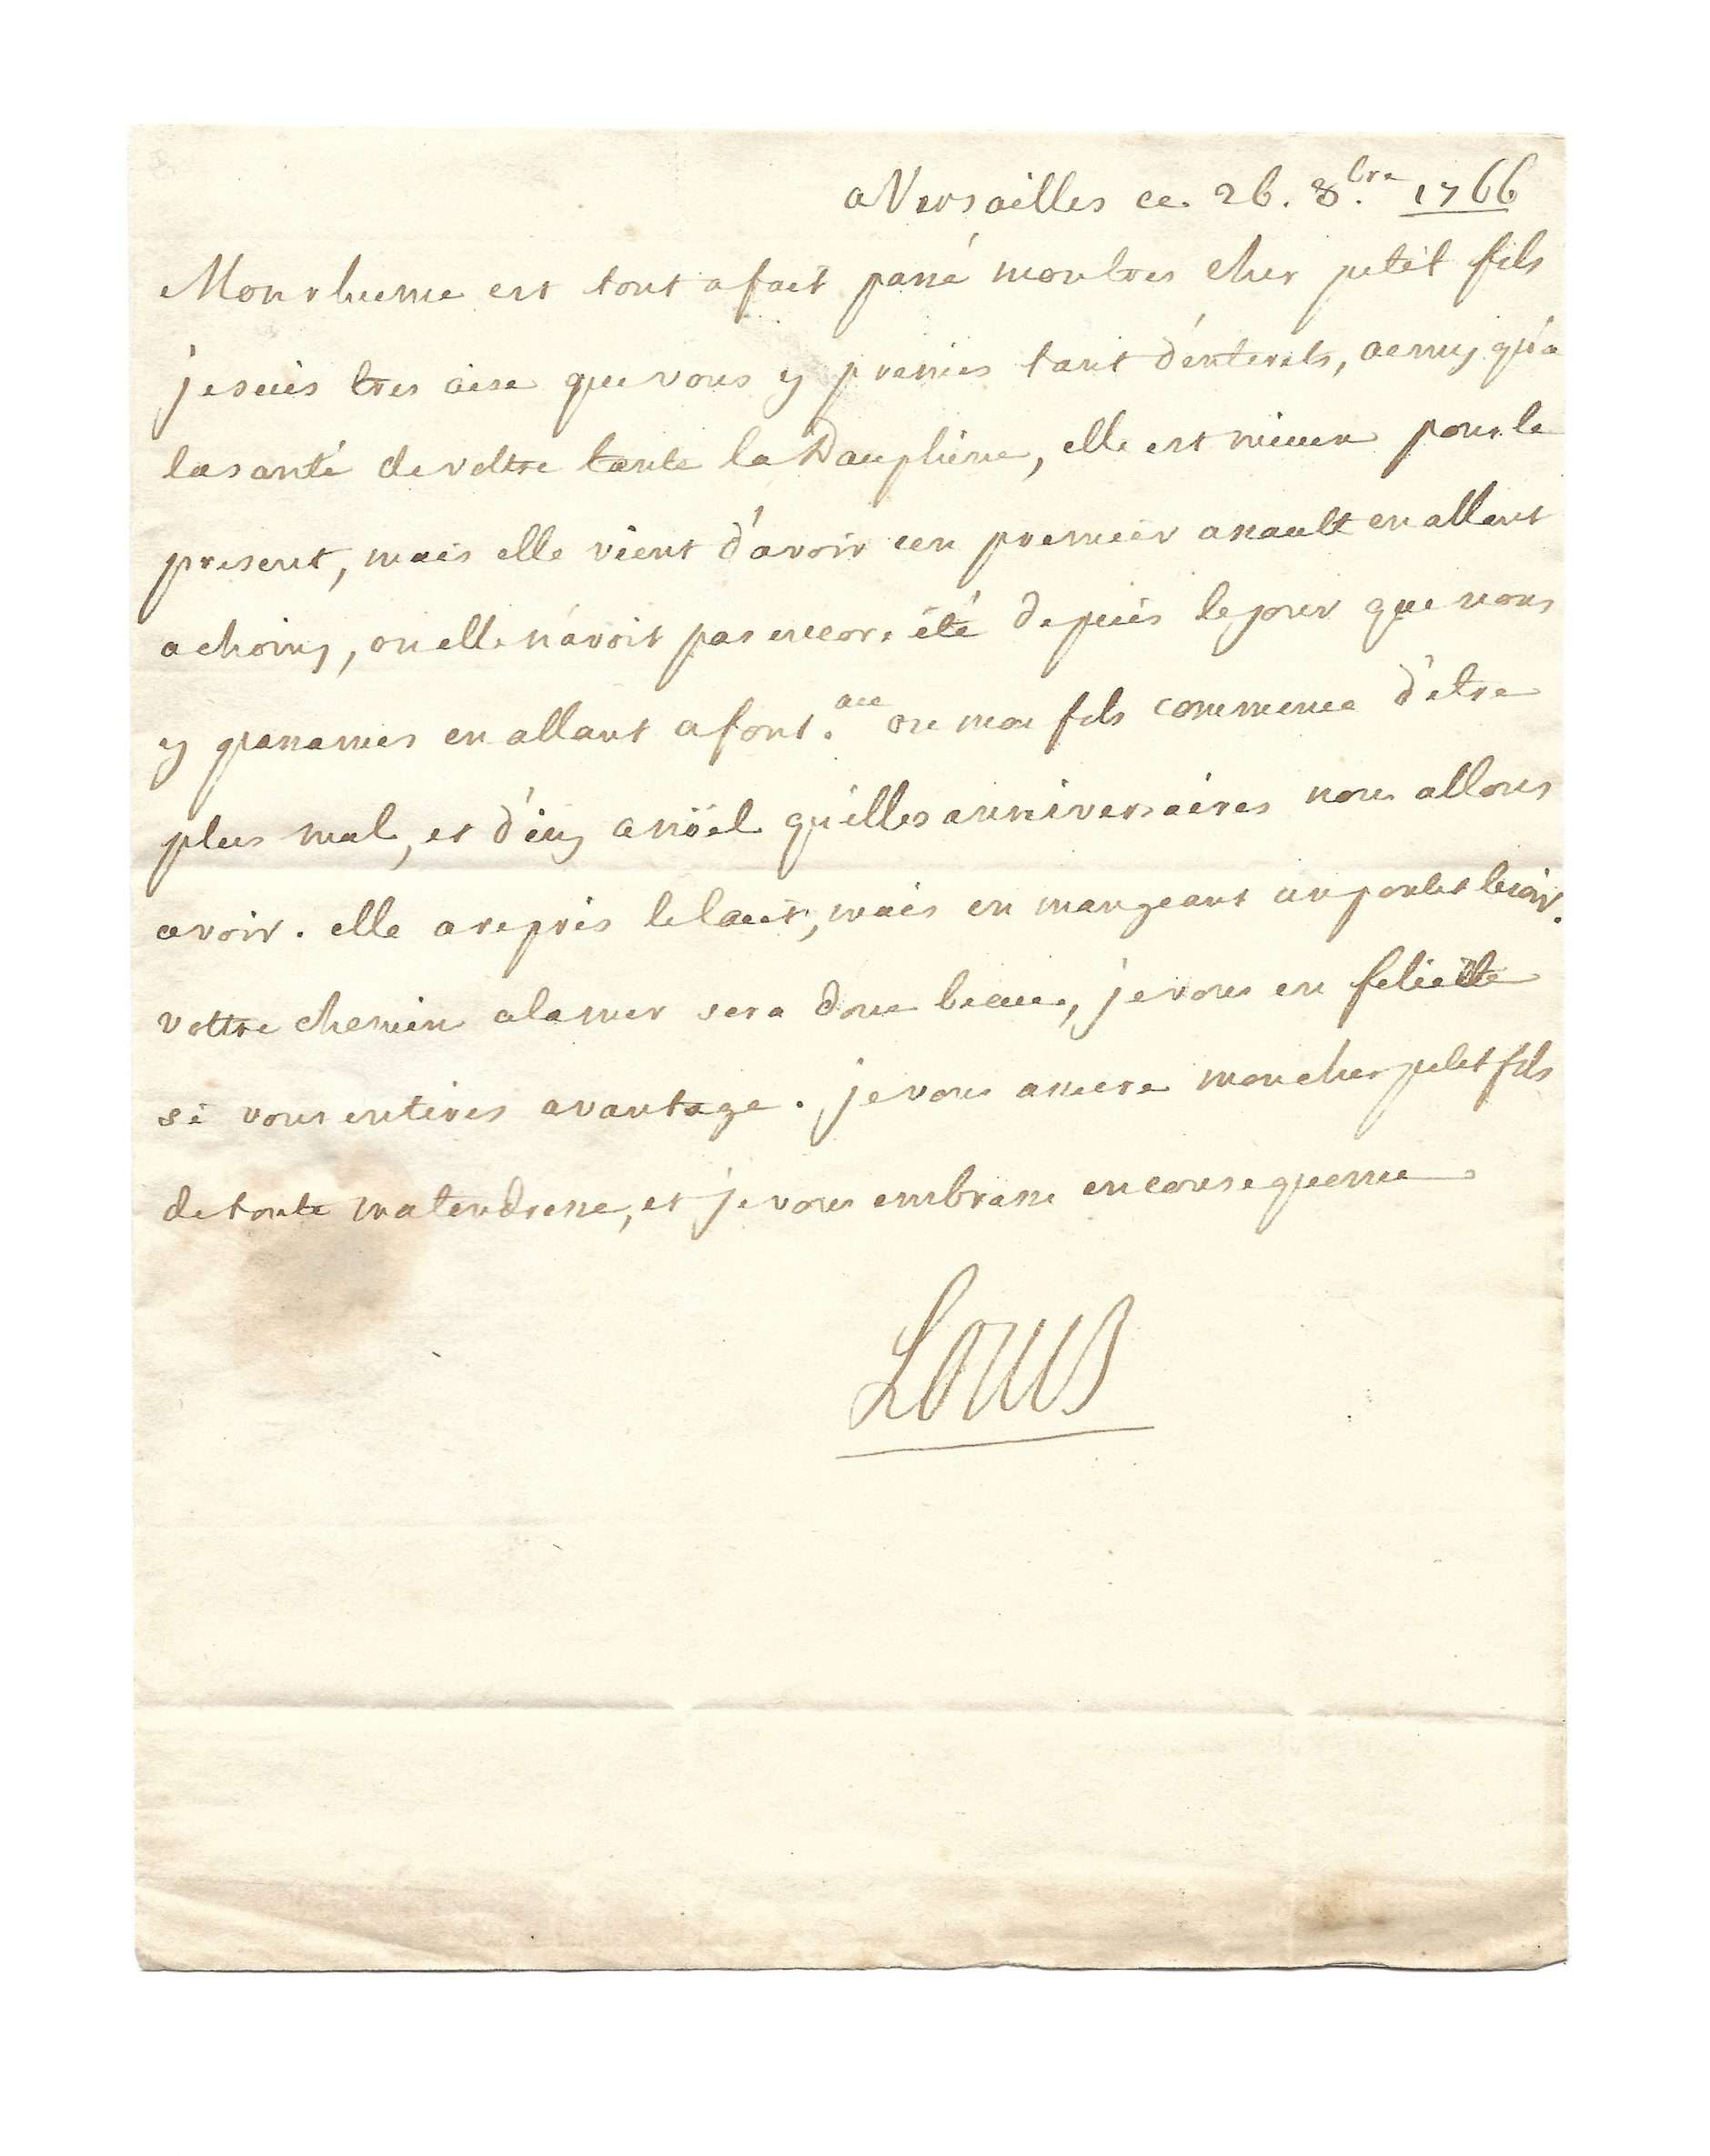 a Versailles ce 26. 8.bre 1766
Mon rhume est tout a fait passé mon tres cher petit fils
je suis tres aise que vous y preniés tant d'interets, ainsy qu'a
la santé de vottre tante la Dauphine, elle est mieux pour le
present, mais elle vient d'avoir un premier assault en allant
a choisy, ou elle n'avoit pas encore été depuis le jour que nous
y passames en allant a font.au ou mon fils commença d'etre
plus mal, et d'icy a noël qu'elles anniversaires nous allons
avoir. elle a repris le lait, mais en mangeant un poulet le soir.
vottre chemin a la mer sera donc beau, je vous en felicitte
si vous en tirés avantage. je vous assure mon cher petit fils
de toute ma tendresse, et je vous embrasse en consequence.
Louis